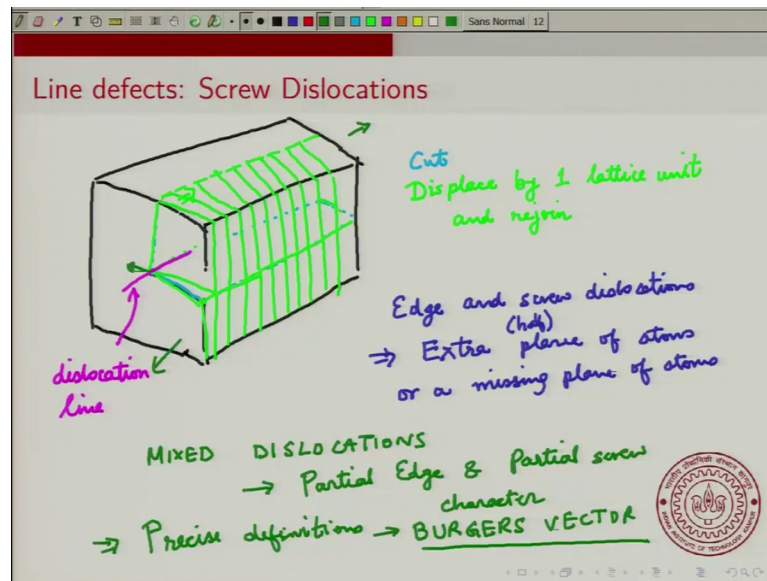 Sans Normal 12
Line defects: Screw Dislocations
Cut
Displace by 1 lattice unit
and rejoin
Edge and screw dislocations
(half)
⇒ Extra plane of atoms
or a missing plane of atoms
dislocation
line
MIXED DISLOCATIONS
→ Partial Edge & Partial screw
character
⇒ Precise definitions → BURGERS VECTOR
भारतीय प्रौद्योगिकी संस्थान कानपुर
INDIAN INSTITUTE OF TECHNOLOGY KANPUR